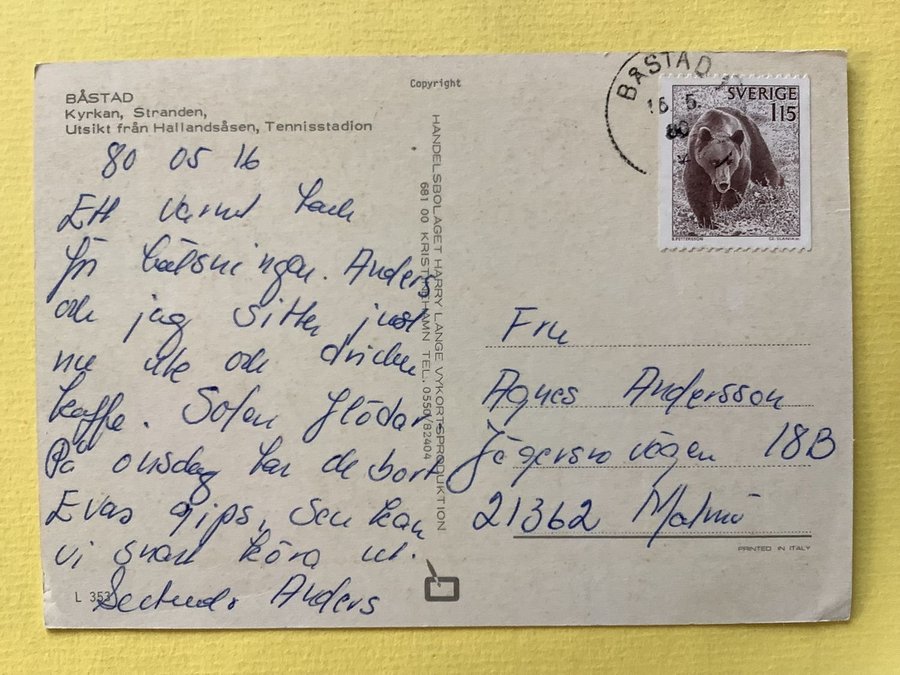 BÅSTAD
Kyrkan, Stranden,
Utsikt från Hallandsåsen, Tennisstadion
80 05 16
Ett varmt tack
för hälsningen. Anders
och jag sitter just
nu ute och dricker
kaffe. Solen flödar.
På onsdag tar de bort
Evas gips, sen kan
vi snart köra ut.
Anders
L 353
Copyright
HANDELSBOLAGET HARRY LANGE VYKORTSPRODUKTION
681 00 KRISTINEHAMN TEL. 0550/82404
BÅSTAD
16. 5.
80
SVERIGE
115
Fru
Agnes Andersson
Jägersrovägen 18B
21362 Malmö
PRINTED IN ITALY